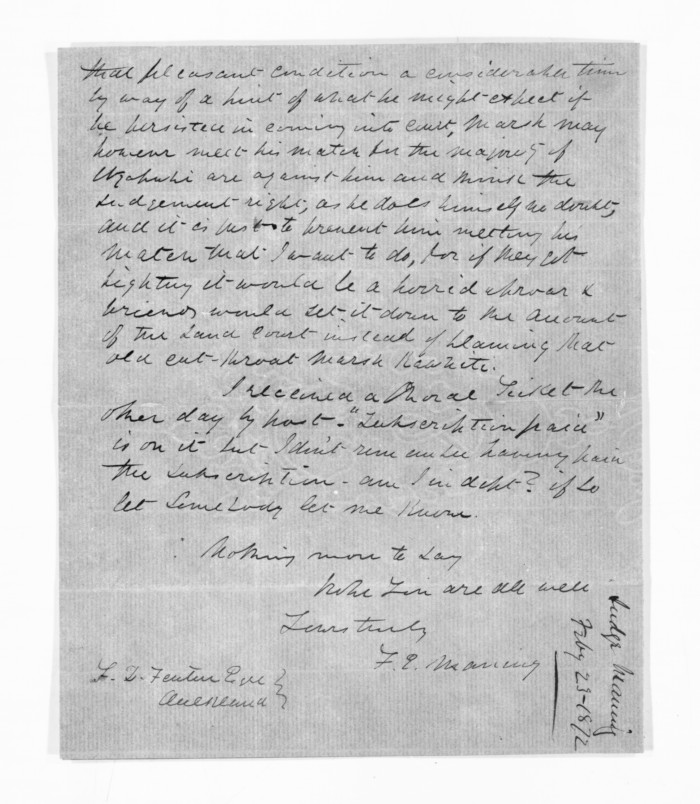 that pleasant condition a considerable time
by way of a hint of what he might expect if
he persisted in coming into court, Marsh may
however meet his match for the majority of
Ngapuhi are against him and think the
Judgement right, as he does himself no doubt,
and it is just to prevent him meeting his
match that I want to do, for if they got
fighting it would be a horrid uproar &
friends would set it down to the account
of the Land Court instead of blaming that
old cut-throat Marsh Kawhiti.
I received a Choral Ticket the
other day by post - "Subscription paid"
is on it but I dont remember having paid
the subscription - am I in debt? if so
let somebody let me know.
Nothing more to say
hope you are all well
Yours truly
F. E. Maning
F. D. Fenton Esqre
Auckland
Judge Maning
Feby 23-1872